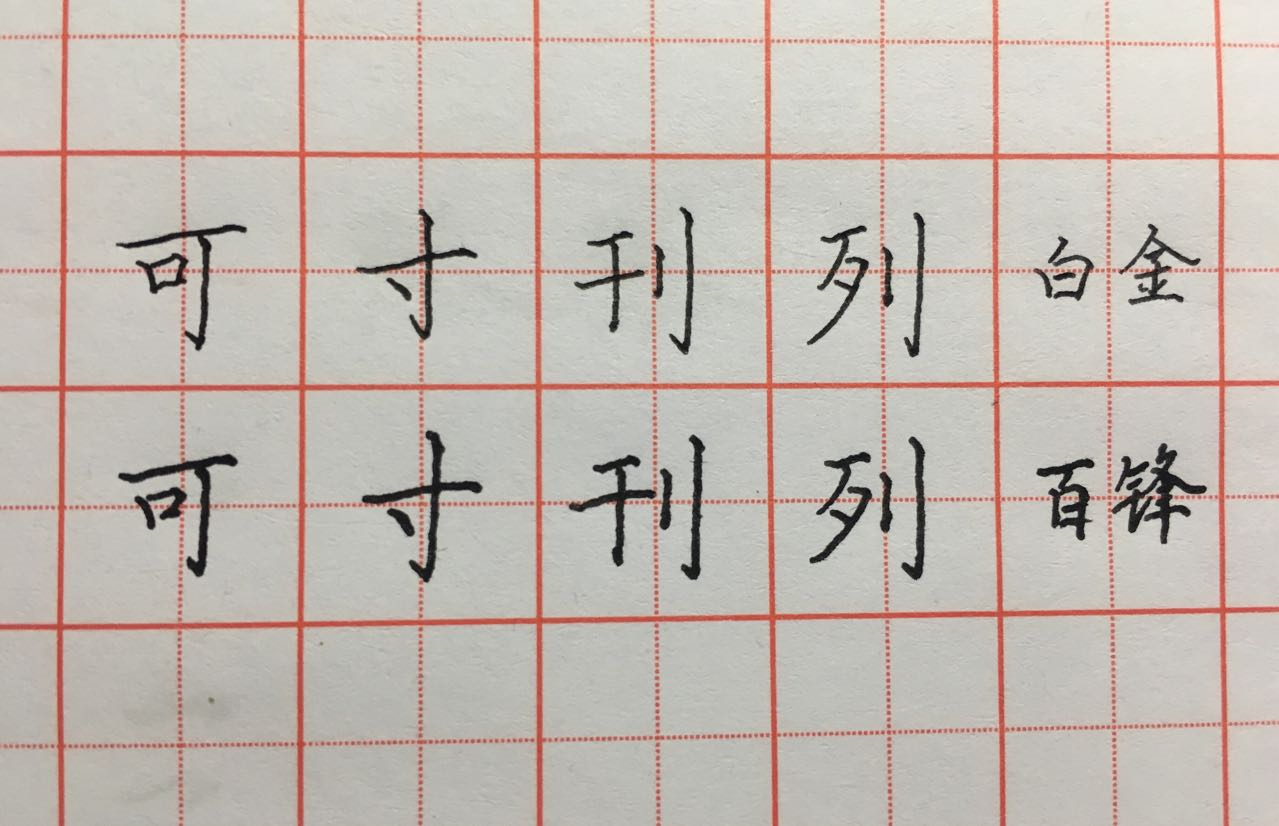 可 寸 刊 列 白金
可 寸 刊 列 百锋